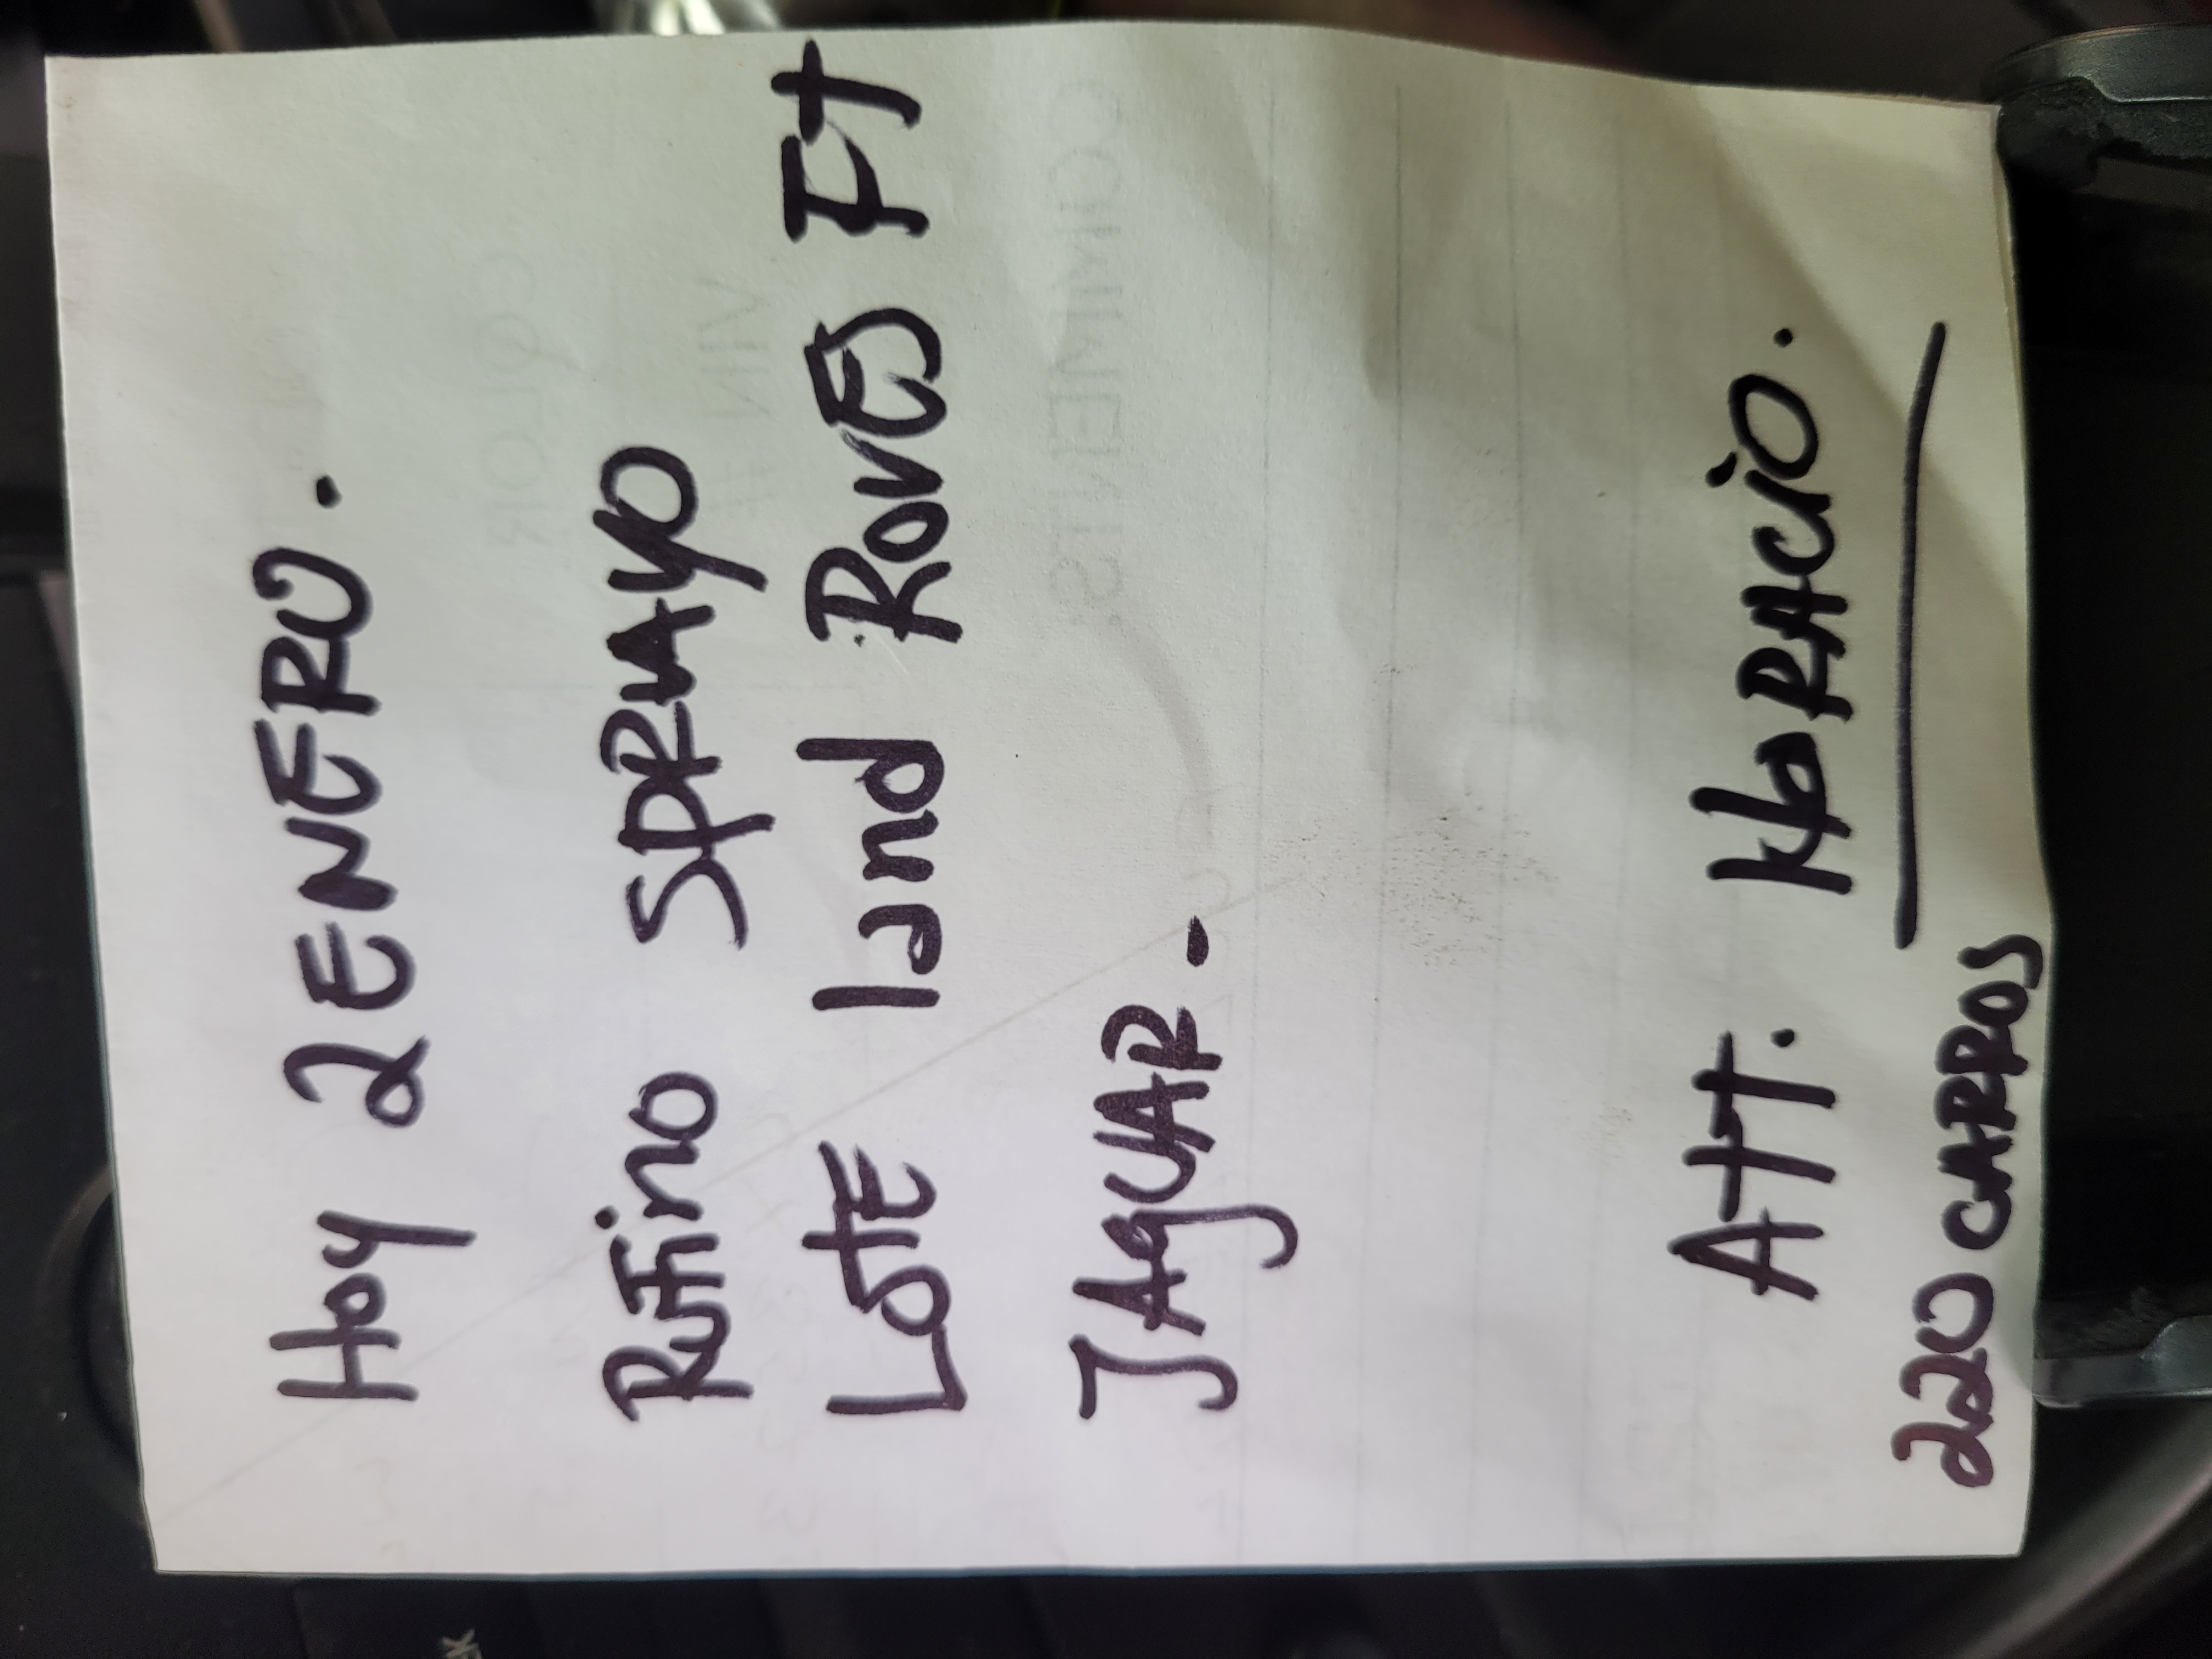 Hoy 2 ENERO.
Rufino SPRAYO
LoTE land RovES Ft
JAgUAR -
ATT: HoRACiO.
220 CARROS